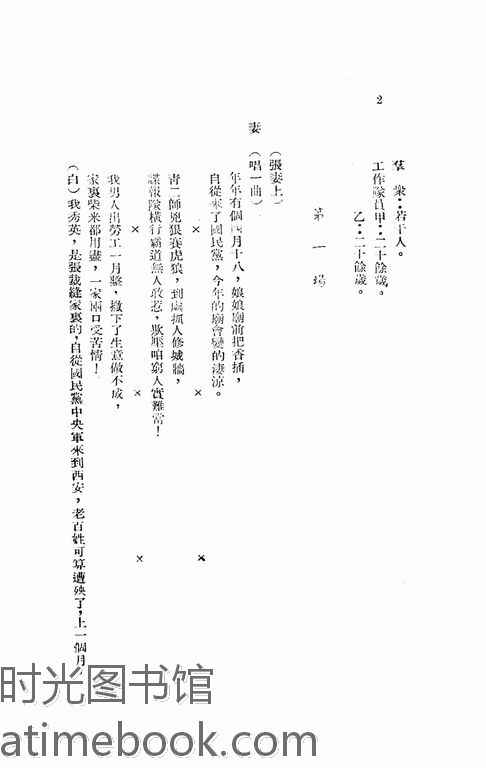 2
羣　衆：若干人。
工作隊員甲：二十餘歲。
乙：二十餘歲。
第一場
（張妻上）
妻　（唱一曲）
年年有個四月十八，娘娘廟前把香插，
自從來了國民黨，今年的廟會變的凄涼。
×　×　×
青二師兇狠賽虎狼，到處抓人修城牆，
諜報隊橫行霸道無人敢惹，欺壓咱窮人實難當！
×　×　×
我男人出勞工一月整，撇下了生意做不成，
家裏柴米都用盡，一家兩口受苦情！
（白）我秀英，是張裁縫家裏的，自從國民黨中央軍來到西安，老百姓可算遭殃了，上一個月，
时光图书馆
atimebook.com